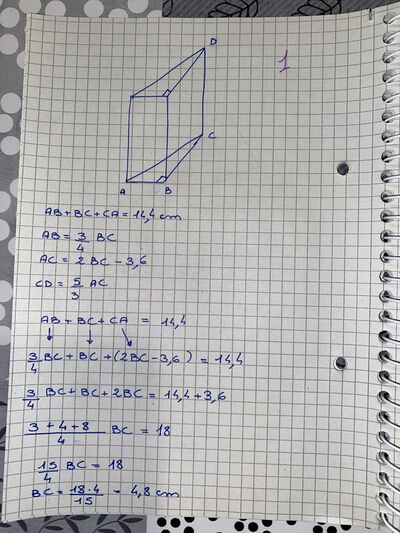 1
D
C
A B
AB+BC+CA=14,4 cm
AB=3/4 BC
AC=2BC-3,6
CD=5/3 AC
AB+BC+CA=14,4
↓ ↓ ↘
3/4 BC+BC+(2BC-3,6)=14,4
3/4 BC+BC+2BC=14,4+3,6
3+4+8/4 BC=18
15/4 BC=18
BC=18·4/15=4,8 cm